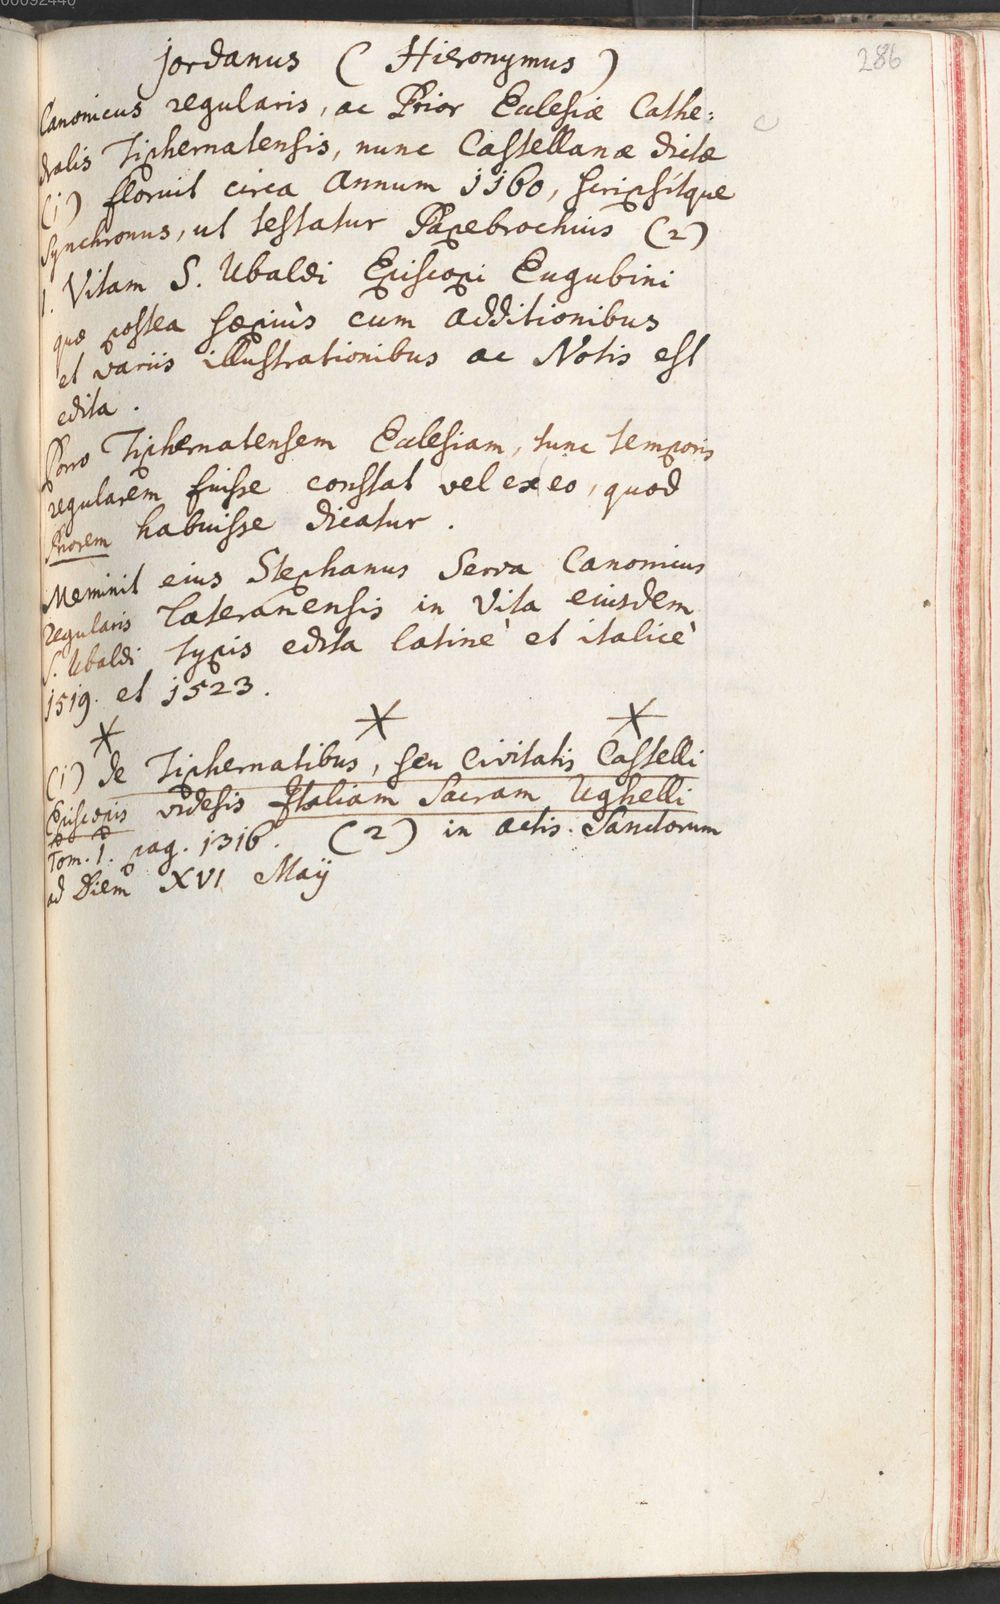 00092440
286
Jordanus ( Hieronymus )
Canonicus regularis, ac Prior Ecclesiæ Cathe:
dralis Tiphernatensis, nunc Castellanæ dictæ
(1) floruit circa Annum 1160, scripsitque
Synchronus, ut testatur Papebrochius (2)
1. Vitam S. Ubaldi Episcopi Eugubini
quæ postea sæpiùs cum additionibus
et variis illustrationibus ac Notis est
edita.
Porro Tiphernatensem Ecclesiam, tunc temporis
regularem fuisse constat vel ex eo, quod
Priorem habuisse dicatur.
Meminit eius Stephanus Serva Canonicus
regularis Lateranensis in Vita eiusdem
S. Ubaldi typis edita latinè et italicè
1519. et 1523.
* * *
(1) de Tiphernatibus, seu Civitatis Castelli
Episcopis videsis Italiam Sacram Ughelli
Tom. 1. pag. 1316. (2) in actis Sanctorum
ad Diem XVI Maÿ